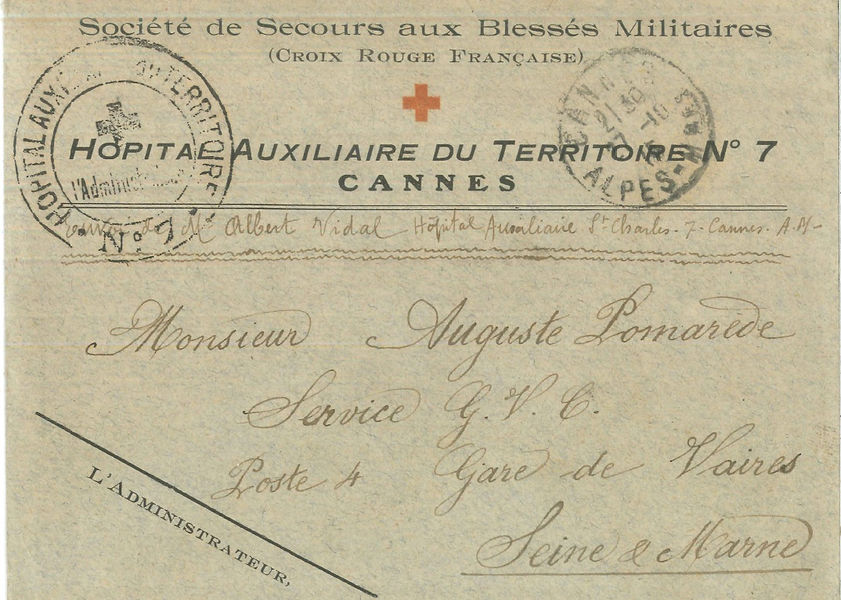 Société de Secours aux Blessés Militaires
(Croix Rouge Française)
Hôpital Auxiliaire du Territoire N° 7
CANNES
HOPITAL AUXI DU TERRITOIRE
N° 7
CANNES
21 30
ALPES-MMES
envoi de Mr Albert Vidal Hôpital Auxiliaire St Charles - 7 - Cannes - A. M -
Monsieur Auguste Pomarède
Service G. V. C.
Poste 4 Gare de Vaires
Seine & Marne
L'Administrateur,